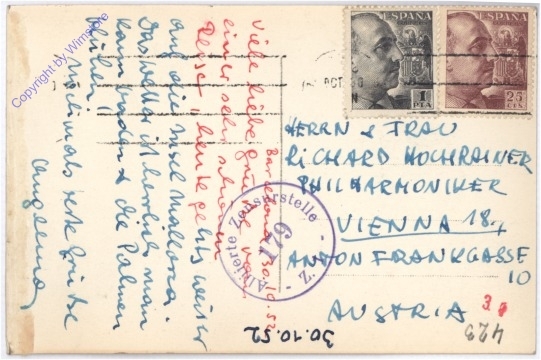 Copyright by Wimstore
Barcelona 30.10.52
Viele liebe Grüße von
einer sehr schönen
Reise, heute geht's weiter
auf die Insel Mallorca.
Das Wetter ist herrlich man
kann baden & die Palmen
blühen!
Nochmals beste Grüße
ESPAÑA
1
PTA
ESPAÑA
25
CTS
OCT
HERRN & FRAU
RICHARD HOCHRAINER
PHILHARMONIKER
VIENNA 18.,
ANTON FRANKGASSE
10
AUSTRIA
Alliierte Zensurstelle - Z. -
179
30.10.52
423